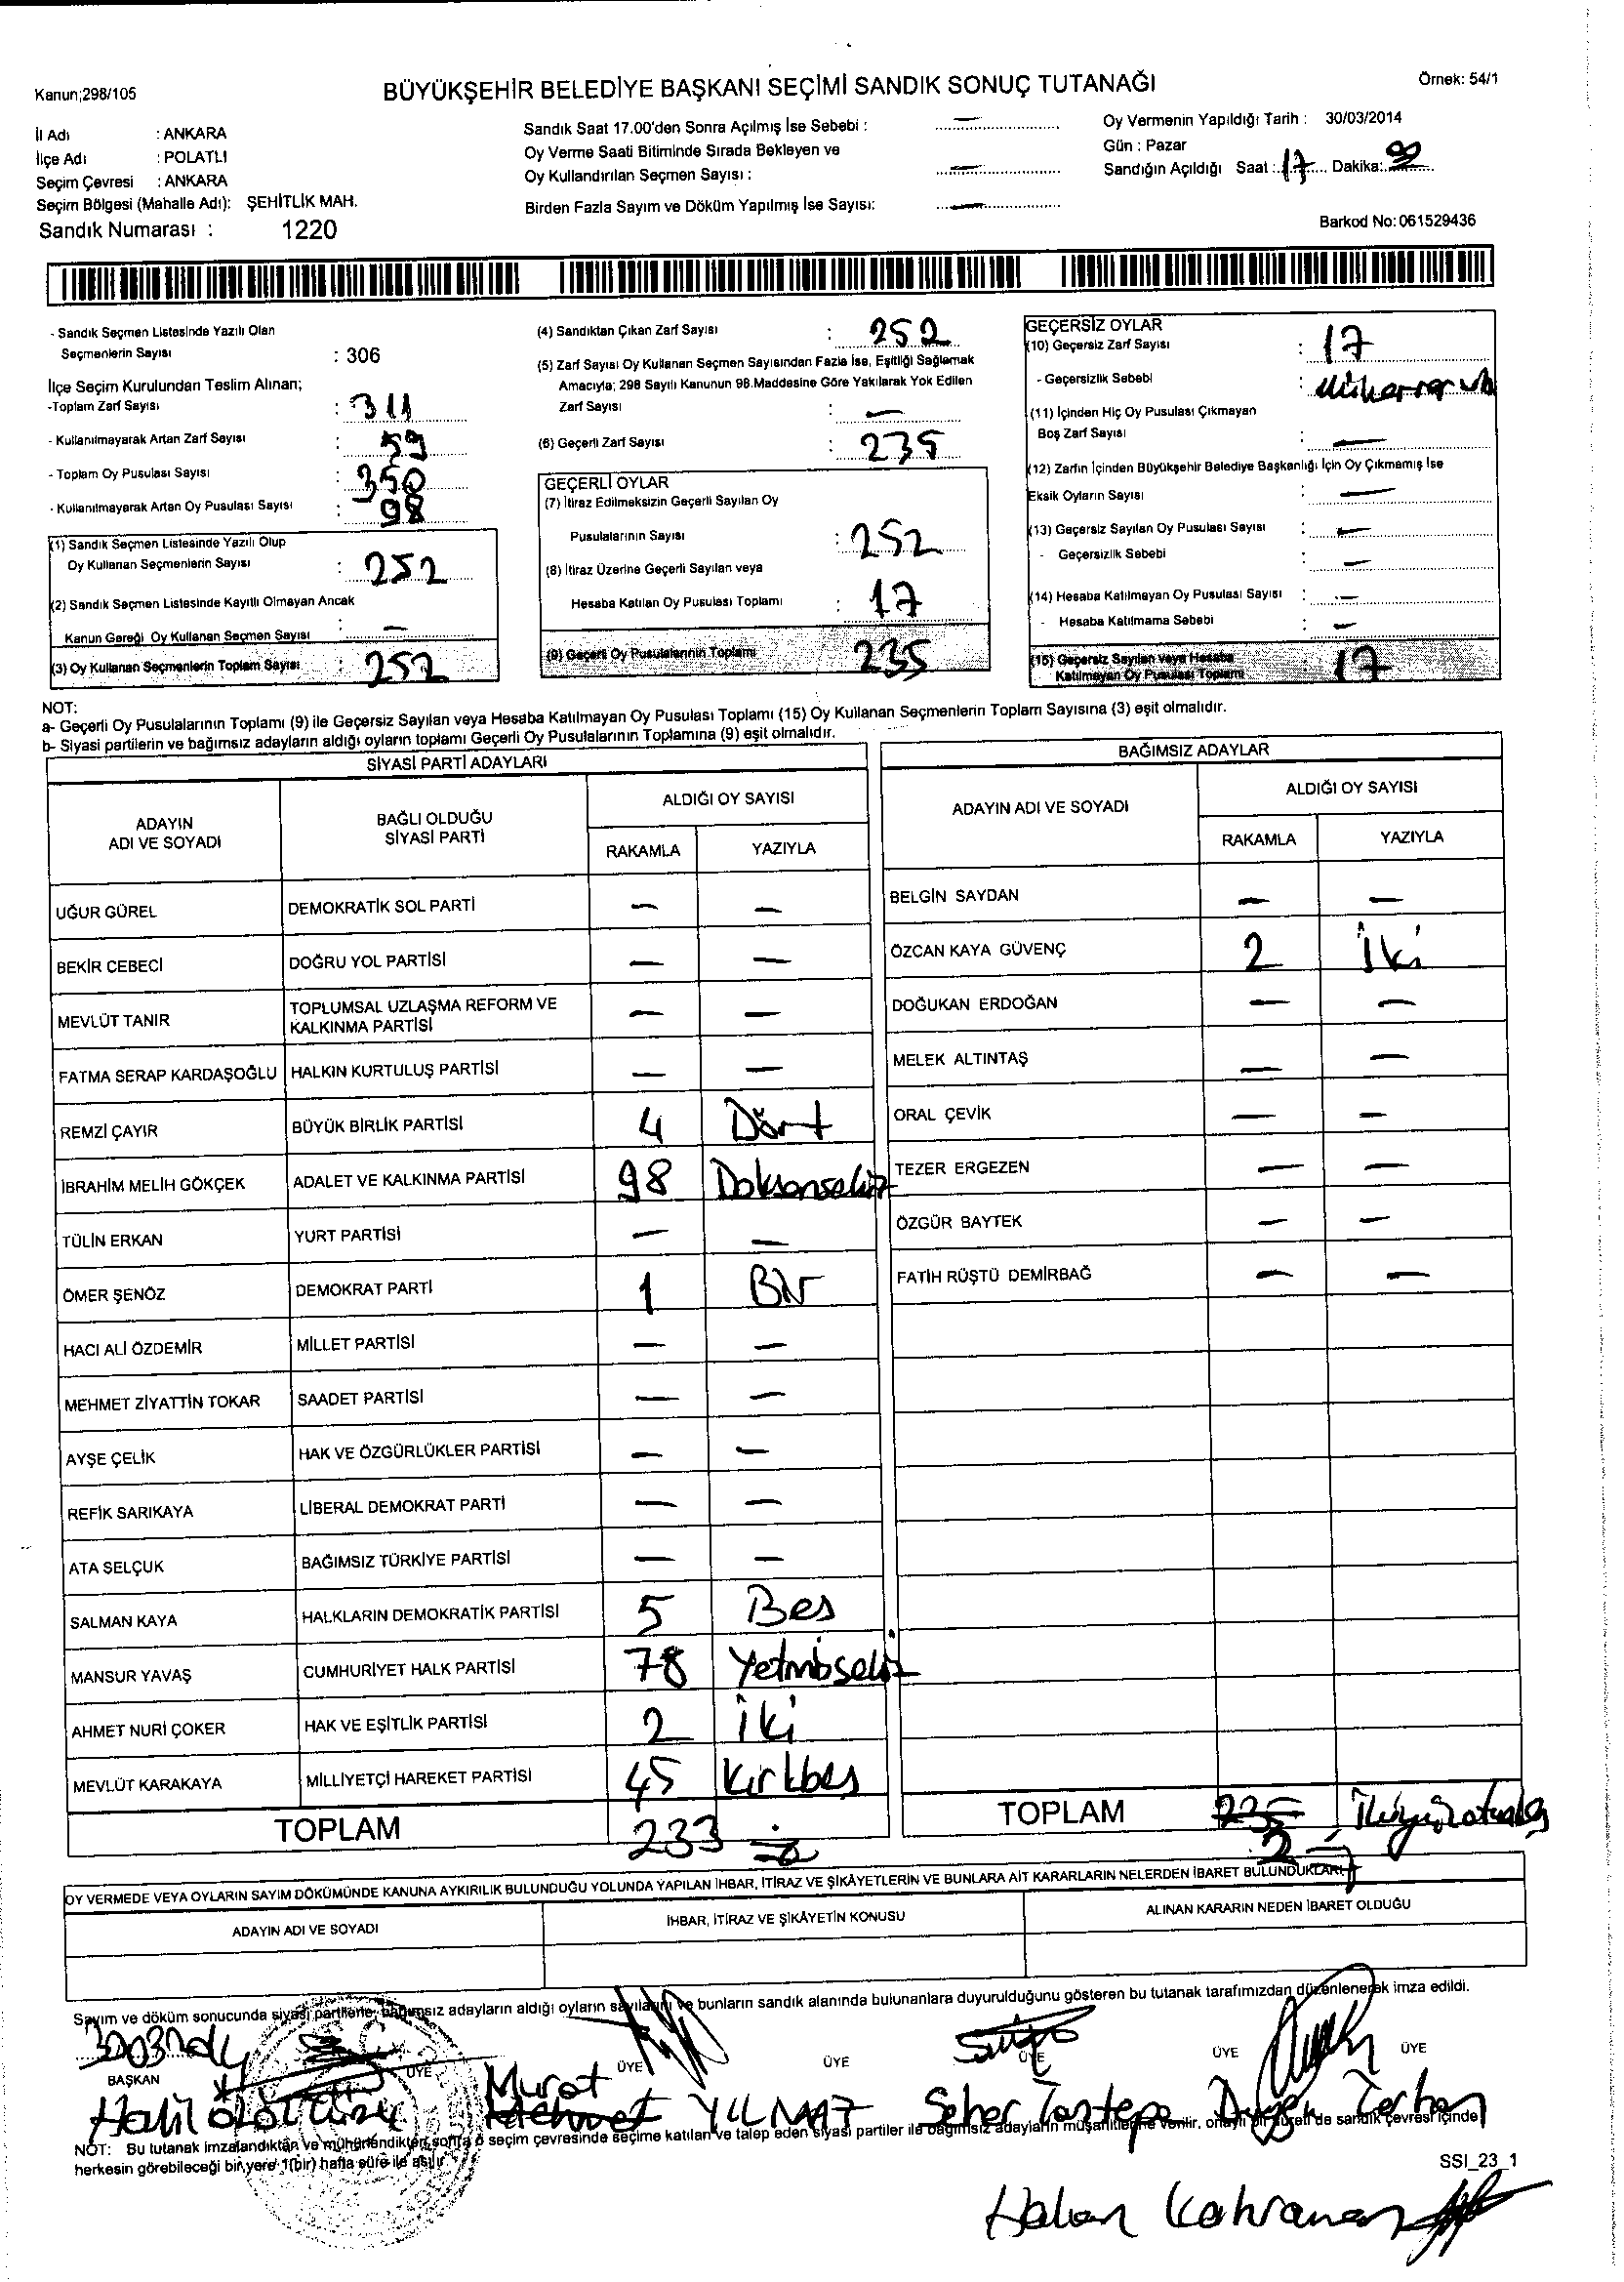 Kanun;298/105
BÜYÜKŞEHİR BELEDİYE BAŞKANI SEÇİMİ SANDIK SONUÇ TUTANAĞI
Örnek: 54/1
İl Adı : ANKARA
İlçe Adı : POLATLI
Seçim Çevresi : ANKARA
Seçim Bölgesi (Mahalle Adı): ŞEHİTLİK MAH.
Sandık Numarası : 1220
Sandık Saat 17.00'den Sonra Açılmış İse Sebebi : —
Oy Verme Saati Bitiminde Sırada Bekleyen ve
Oy Kullandırılan Seçmen Sayısı : —
Birden Fazla Sayım ve Döküm Yapılmış İse Sayısı: —
Oy Vermenin Yapıldığı Tarih : 30/03/2014
Gün : Pazar
Sandığın Açıldığı Saat : 17 Dakika:
Barkod No: 061529436
- Sandık Seçmen Listesinde Yazılı Olan
Seçmenlerin Sayısı : 306
İlçe Seçim Kurulundan Teslim Alınan;
-Toplam Zarf Sayısı : 311
- Kullanılmayarak Artan Zarf Sayısı : 59
- Toplam Oy Pusulası Sayısı : 350
- Kullanılmayarak Artan Oy Pusulası Sayısı : 98
(1) Sandık Seçmen Listesinde Yazılı Olup
Oy Kullanan Seçmenlerin Sayısı : 252
(2) Sandık Seçmen Listesinde Kayıtlı Olmayan Ancak
Kanun Gereği Oy Kullanan Seçmen Sayısı : —
(3) Oy Kullanan Seçmenlerin Toplam Sayısı : 252
(4) Sandıktan Çıkan Zarf Sayısı : 252
(5) Zarf Sayısı Oy Kullanan Seçmen Sayısından Fazla İse, Eşitliği Sağlamak
Amacıyla; 298 Sayılı Kanunun 98.Maddesine Göre Yakılarak Yok Edilen
Zarf Sayısı : —
(6) Geçerli Zarf Sayısı : 235
GEÇERLİ OYLAR
(7) İtiraz Edilmeksizin Geçerli Sayılan Oy
Pusulalarının Sayısı : 252
(8) İtiraz Üzerine Geçerli Sayılan veya
Hesaba Katılan Oy Pusulası Toplamı : 17
(9) Geçerli Oy Pusulalarının Toplamı 235
GEÇERSİZ OYLAR
(10) Geçersiz Zarf Sayısı : 17
- Geçersizlik Sebebi :
(11) İçinden Hiç Oy Pusulası Çıkmayan
Boş Zarf Sayısı : —
(12) Zarfın İçinden Büyükşehir Belediye Başkanlığı İçin Oy Çıkmamış İse
Eksik Oyların Sayısı : —
(13) Geçersiz Sayılan Oy Pusulası Sayısı : —
- Geçersizlik Sebebi : —
(14) Hesaba Katılmayan Oy Pusulası Sayısı : —
- Hesaba Katılmama Sebebi : —
(15) Geçersiz Sayılan veya Hesaba
Katılmayan Oy Pusulası Toplamı : 17
NOT:
a- Geçerli Oy Pusulalarının Toplamı (9) ile Geçersiz Sayılan veya Hesaba Katılmayan Oy Pusulası Toplamı (15) Oy Kullanan Seçmenlerin Toplam Sayısına (3) eşit olmalıdır.
b- Siyasi partilerin ve bağımsız adayların aldığı oyların toplamı Geçerli Oy Pusulalarının Toplamına (9) eşit olmalıdır.
SİYASİ PARTİ ADAYLARI
ADAYIN
ADI VE SOYADI
BAĞLI OLDUĞU
SİYASİ PARTİ
ALDIĞI OY SAYISI
RAKAMLA YAZIYLA
UĞUR GÜREL DEMOKRATİK SOL PARTİ — —
BEKİR CEBECİ DOĞRU YOL PARTİSİ — —
MEVLÜT TANIR TOPLUMSAL UZLAŞMA REFORM VE
KALKINMA PARTİSİ — —
FATMA SERAP KARDAŞOĞLU HALKIN KURTULUŞ PARTİSİ — —
REMZİ ÇAYIR BÜYÜK BİRLİK PARTİSİ 4 Dört
İBRAHİM MELİH GÖKÇEK ADALET VE KALKINMA PARTİSİ 98 Doksansekiz
TÜLİN ERKAN YURT PARTİSİ — —
ÖMER ŞENÖZ DEMOKRAT PARTİ 1 Bir
HACI ALİ ÖZDEMİR MİLLET PARTİSİ — —
MEHMET ZİYATTİN TOKAR SAADET PARTİSİ — —
AYŞE ÇELİK HAK VE ÖZGÜRLÜKLER PARTİSİ — —
REFİK SARIKAYA LİBERAL DEMOKRAT PARTİ — —
ATA SELÇUK BAĞIMSIZ TÜRKİYE PARTİSİ — —
SALMAN KAYA HALKLARIN DEMOKRATİK PARTİSİ 5 Bes
MANSUR YAVAŞ CUMHURİYET HALK PARTİSİ 78 Yetmişsekiz
AHMET NURİ ÇOKER HAK VE EŞİTLİK PARTİSİ 2 İki
MEVLÜT KARAKAYA MİLLİYETÇİ HAREKET PARTİSİ 45 Kırkbeş
TOPLAM 233
BAĞIMSIZ ADAYLAR
ADAYIN ADI VE SOYADI
ALDIĞI OY SAYISI
RAKAMLA YAZIYLA
BELGİN SAYDAN — —
ÖZCAN KAYA GÜVENÇ 2 İki
DOĞUKAN ERDOĞAN — —
MELEK ALTINTAŞ — —
ORAL ÇEVİK — —
TEZER ERGEZEN — —
ÖZGÜR BAYTEK — —
FATİH RÜŞTÜ DEMİRBAĞ — —
TOPLAM 235
2
OY VERMEDE VEYA OYLARIN SAYIM DÖKÜMÜNDE KANUNA AYKIRILIK BULUNDUĞU YOLUNDA YAPILAN İHBAR, İTİRAZ VE ŞİKÂYETLERİN VE BUNLARA AİT KARARLARIN NELERDEN İBARET BULUNDUKLARI
ADAYIN ADI VE SOYADI
İHBAR, İTİRAZ VE ŞİKÂYETİN KONUSU
ALINAN KARARIN NEDEN İBARET OLDUĞU
Sayım ve döküm sonucunda siyasi partilerle, bağımsız adayların aldığı oyların sayılarını ve bunların sandık alanında bulunanlara duyurulduğunu gösteren bu tutanak tarafımızdan düzenlenerek imza edildi.
BAŞKAN ÜYE ÜYE ÜYE ÜYE ÜYE ÜYE
Halil Murat Mehmet YILMAZ Seher Taştepe Duygu
NOT: Bu tutanak imzalandıktan ve mühürlendikten sonra o seçim çevresinde seçime katılan ve talep eden siyasi partiler ile bağımsız adayların müşahitlerine verilir, onaylı bir sureti de sandık çevresi içinde
herkesin görebileceği bir yere 1(bir) hafta süre ile asılır.
SSI_23_1
Hakan Kahraman